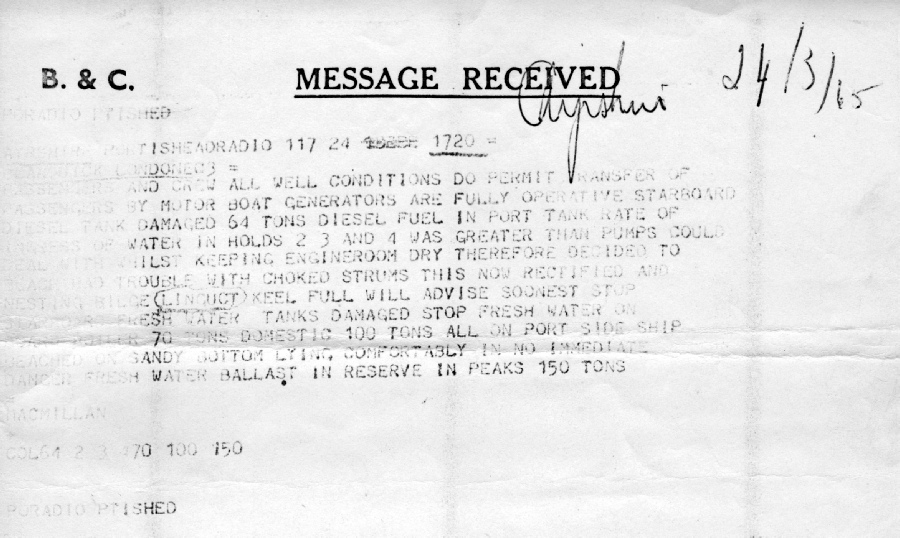 B. & C. MESSAGE RECEIVED Ayrshire 24/3/65
PORADIO PTISHED
AYRSHIRE PORTISHEADRADIO 117 24 1720 =
LONDONEC3 =
PASSENGERS AND CREW ALL WELL CONDITIONS DO PERMIT TRANSFER OF
PASSENGERS BY MOTOR BOAT GENERATORS ARE FULLY OPERATIVE STARBOARD
DIESEL TANK DAMAGED 64 TONS DIESEL FUEL IN PORT TANK RATE OF
OF WATER IN HOLDS 2 3 AND 4 WAS GREATER THAN PUMPS COULD
DEAL WITH WHILST KEEPING ENGINEROOM DRY THEREFORE DECIDED TO
BEACH HAD TROUBLE WITH CHOKED STRUMS THIS NOW RECTIFIED AND
BILGE (LINGUCT) KEEL FULL WILL ADVISE SOONEST STOP
FRESH WATER TANKS DAMAGED STOP FRESH WATER ON
BOILER 70 TONS DOMESTIC 100 TONS ALL ON PORT SIDE SHIP
BEACHED ON SANDY BOTTOM LYING COMFORTABLY IN NO IMMEDIATE
DANGER FRESH WATER BALLAST IN RESERVE IN PEAKS 150 TONS
MACMILLAN
COL64 2 3 470 100 150
PORADIO PTISHED